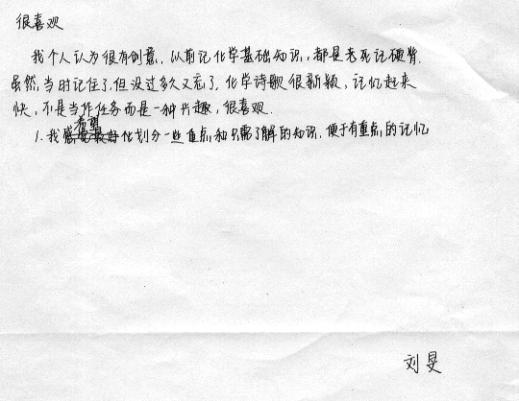 很喜欢
我个人认为很有创意，以前记化学基础知识，都是老死记硬背，
虽然，当时记住了，但没过多久又忘了，化学诗歌很新颖，记忆起来
快，不是当作任务而是一种兴趣，很喜欢．
希望
1. 我 化划分一些重点和只需了解的知识，便于有重点的记忆
刘旻